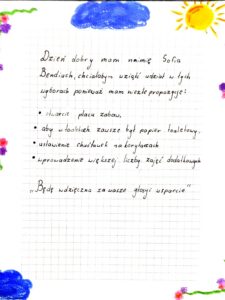 Dzień dobry mam na imię Sofia
Bendiach, chciałabym wziąść udział w tych
wyborach ponieważ mam niezłe propozycje:
• otwarcie placu zabaw,
• aby w toaletach zawsze był papier toaletowy.
• ustawienie chuśtawek na korytarzach
• wprowadzenie większej liczby zajęć dodatkowych
„Będę wdzięczna za wasze głosy i wsparcie"